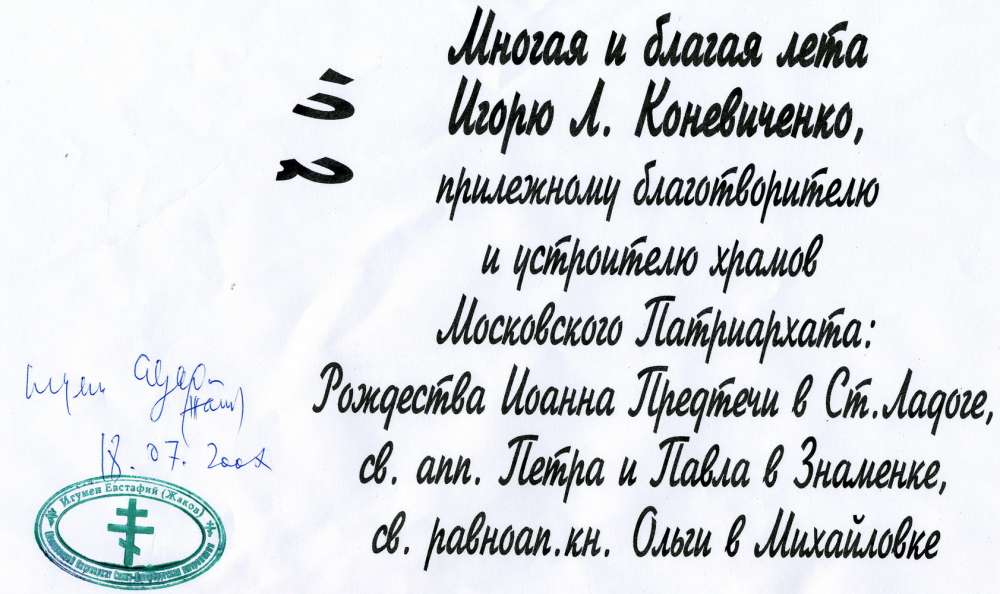 Многая и благая лета
Игорю Л. Коневиченко,
прилежному благотворителю
и устроителю храмов
Московского Патриархата:
Рождества Иоанна Предтечи в Ст.Ладоге,
св. апп. Петра и Павла в Знаменке,
св. равноап.кн. Ольги в Михайловке
18.07.
Игумен Евстафий (Жаков)